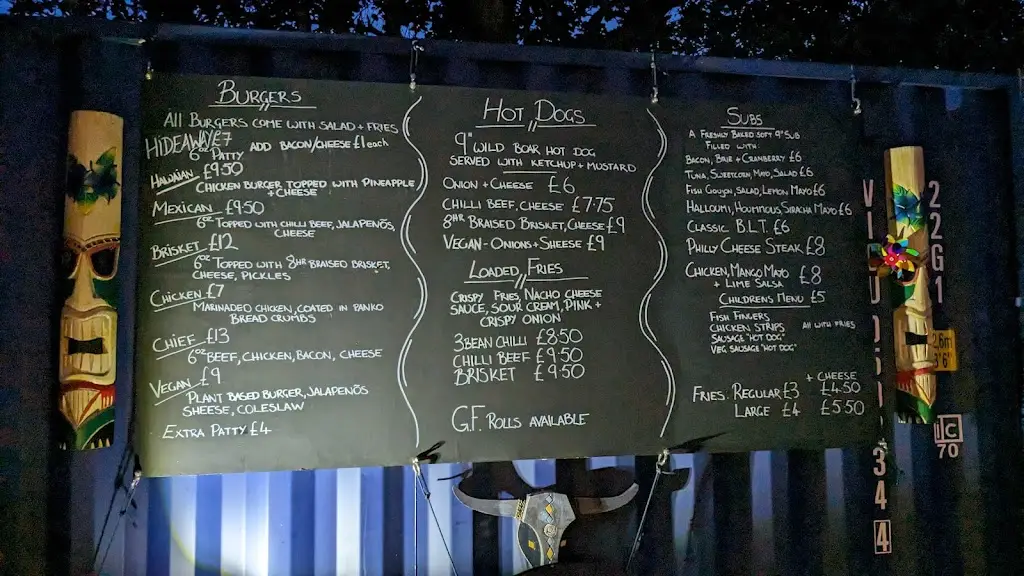 BURGERS
ALL BURGERS COME WITH SALAD + FRIES
HIDEAWAY £7 ADD BACON/CHEESE £1 each
6oz PATTY
HAWAIIAN £9.50
CHICKEN BURGER TOPPED WITH PINEAPPLE
+ CHEESE
MEXICAN £9.50
6oz TOPPED WITH CHILLI BEEF, JALAPENÕS
CHEESE
BRISKET £12
6oz TOPPED WITH 8HR BRAISED BRISKET,
CHEESE, PICKLES
CHICKEN £7
MARINADED CHICKEN, COATED IN PANKO
BREAD CRUMBS
CHIEF £13
6oz BEEF, CHICKEN, BACON, CHEESE
VEGAN £9
PLANT BASED BURGER, JALAPENÕS
SHEESE, COLESLAW
EXTRA PATTY £4
HOT DOGS
9" WILD BOAR HOT DOG
SERVED WITH KETCHUP + MUSTARD
ONION + CHEESE £6
CHILLI BEEF, CHEESE £7.75
8HR BRAISED BRISKET, CHEESE £9
VEGAN - ONIONS + SHEESE £9
LOADED FRIES
CRISPY FRIES, NACHO CHEESE
SAUCE, SOUR CREAM, PINK +
CRISPY ONION
3 BEAN CHILLI £8.50
CHILLI BEEF £9.50
BRISKET £9.50
G.F. ROLLS AVAILABLE
SUBS
A FRESHLY BAKED SOFT 9" SUB
FILLED WITH:
BACON, BRIE + CRANBERRY £6
TUNA, SWEETCORN, MAYO, SALAD £6
FISH GOUJON, SALAD, LEMON, MAYO £6
HALLOUMI, HOUMMOUS, SIRACHA MAYO £6
CLASSIC B.L.T. £6
PHILLY CHEESE STEAK £8
CHICKEN, MANGO MAYO £8
+ LIME SALSA
CHILDRENS MENU £5
FISH FINGERS
CHICKEN STRIPS ALL WITH FRIES
SAUSAGE "HOT DOG"
VEG SAUSAGE "HOT DOG"
+ CHEESE
FRIES. REGULAR £3 £4.50
LARGE £4 £5.50
22G1
2.6m
IC
70
34
4